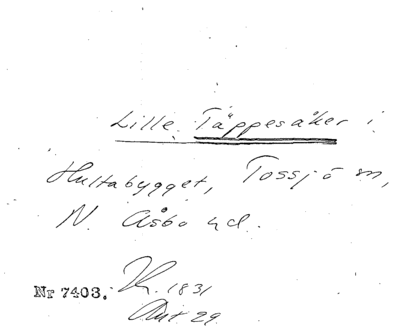 Lille Täppesåker i
Hultabygget, Tossjö sn,
N. Åsbo hd.
Nr 7403. 1831
Akt 29